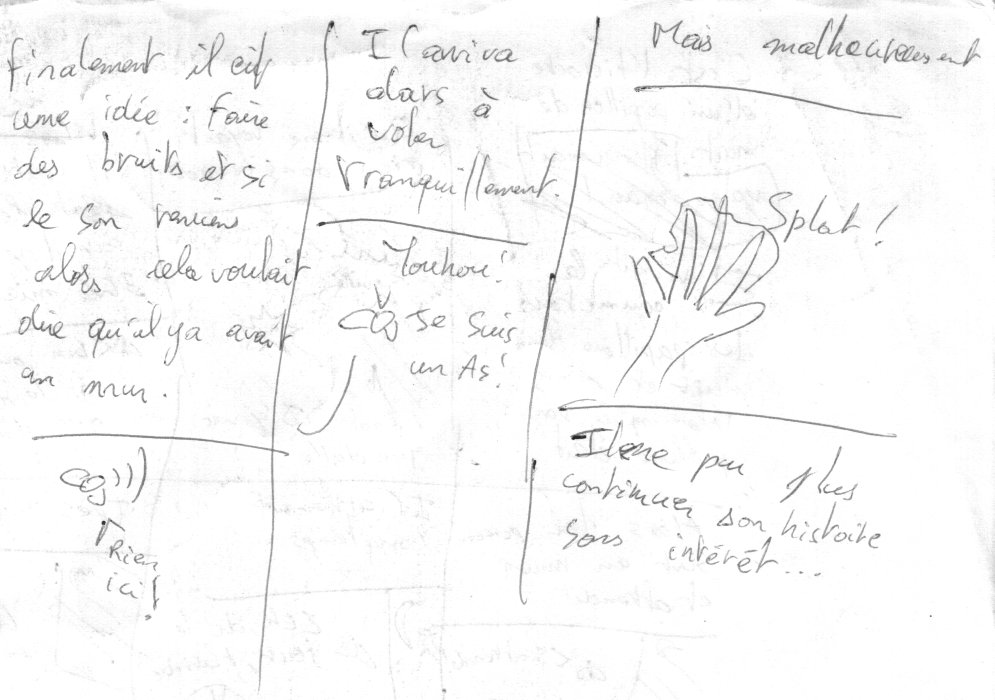 Finalement il eût
une idée : Faire
des bruits et si
le son revien
alors cela voulait
dire qu'il y a avait
un mur.
Rien
ici!
Il arriva
alors à
voler
tranquillement.
Youhou!
Je suis
un As!
Mais malheureusement
Splat!
Il ne pu plus
continuer son histoire
sans intérêt...